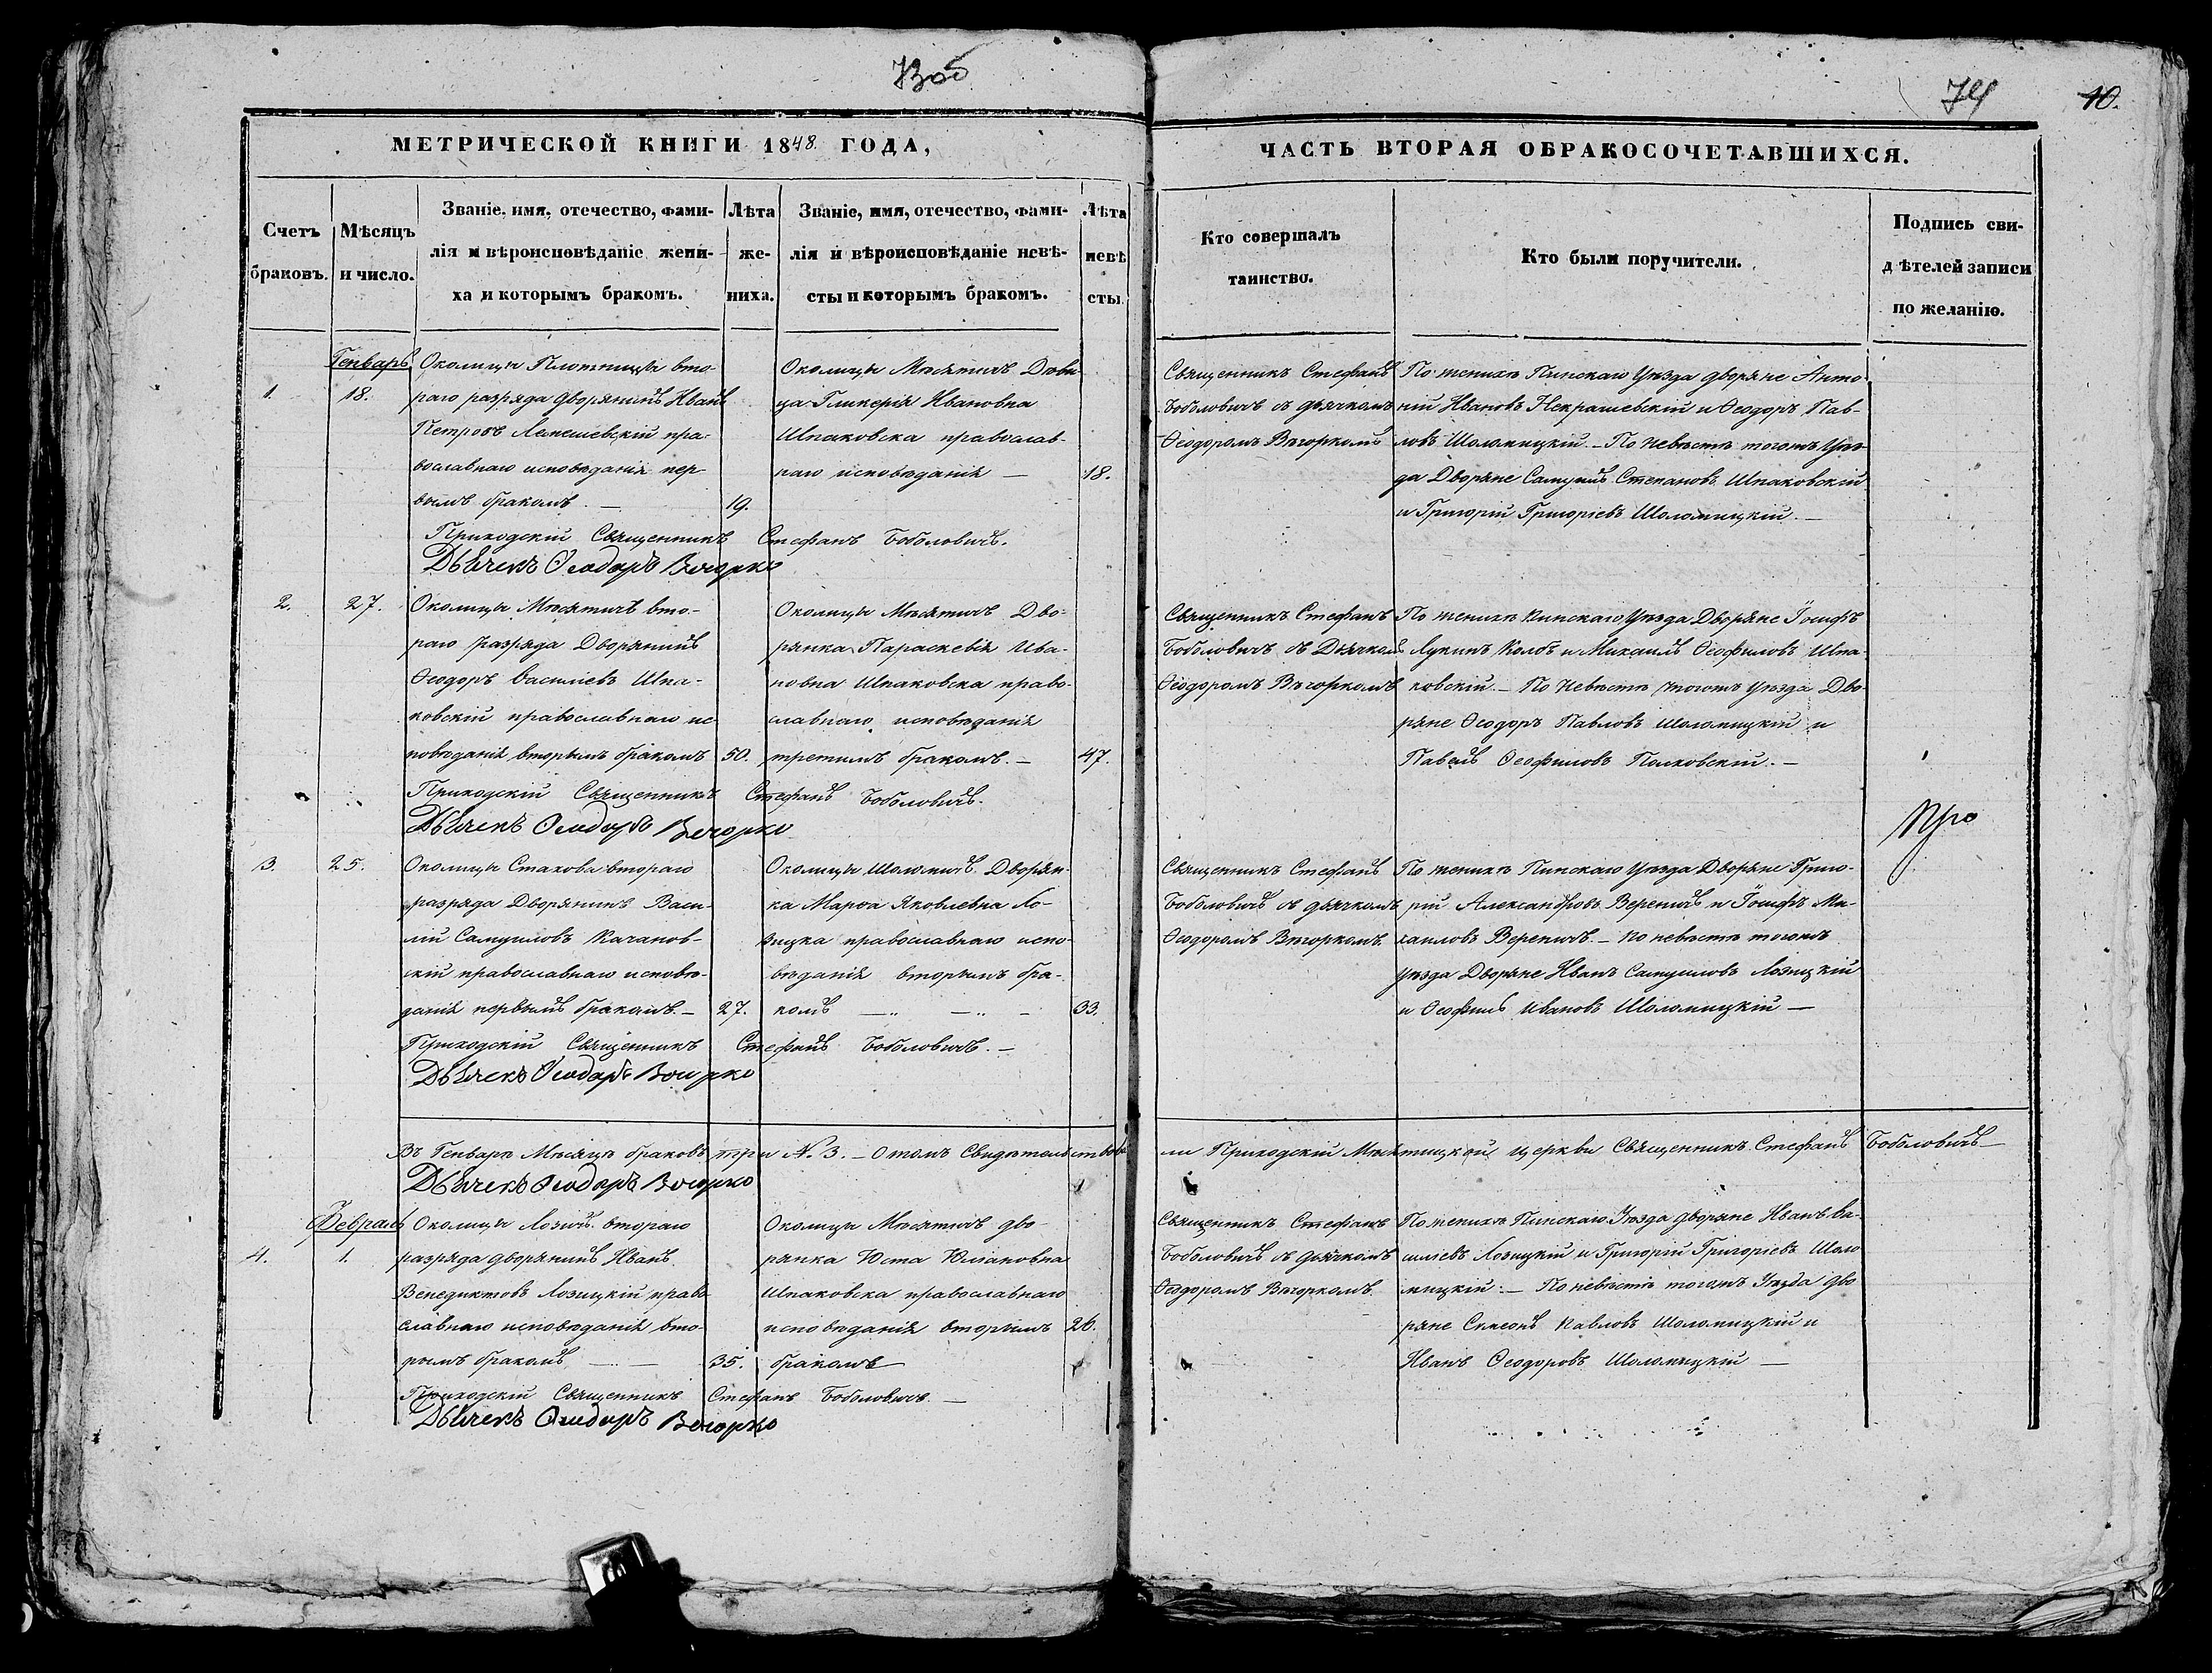 74
10.
МЕТРИЧЕСКОЙ КНИГИ 1848. ГОДА,
ЧАСТЬ ВТОРАЯ ОБРАКОСОЧЕТАВШИХСЯ.
Счетъ
браковъ.
Мѣсяцъ
и число.
Званіе, имя, отечество, фами-
лія и вѣроисповѣданіе жени-
ха и которымъ бракомъ.
Лѣта
же-
ниха.
Званіе, имя, отечество, фами-
лія и вѣроисповѣданіе невѣ-
сты и которымъ бракомъ.
Лѣта
невѣ
сты.
Кто совершалъ
таинство.
Кто были поручители.
Подпись сви-
дѣтелей записи
по желанію.
Генварь
1.
18.
Околицы Плотницы вто-
раго разряда дворянинъ Иванъ
Петровъ пра-
вославнаго исповѣданія пер-
вымъ бракомъ. —
19.
Околицы Мѣсятичъ Дѣви-
ца Гликерія Ивановна
Шпаковска православ-
наго исповѣданія —
18.
Священникъ Стефанъ
Боболовичъ съ дьячкомъ
Ѳеодоромъ Вѣчоркомъ
По женихѣ Пинскаго Уѣзда дворяне Анто-
ній Ивановъ Некрашевскій и Ѳеодоръ Пав-
ловъ Шоломицкій. — По невѣстѣ тогожъ Уѣз-
да Дворяне Самуилъ Степановъ Шпаковскій
и Григорій Григоріевъ Шоломицкій. —
Приходскій Священникъ Стефанъ Боболовичъ.
Дьячекъ Ѳеодоръ Вечорко
2.
27.
Околицы Мѣсятичъ вто-
раго разряда Дворянинъ
Ѳеодоръ Василіевъ Шпа-
ковскій православнаго ис-
повѣданія вторымъ бракомъ
50.
Околицы Мѣсятичъ Дво-
рянка Параскевія Ива-
новна Шпаковска право-
славнаго исповѣданія
третимъ бракомъ. —
47.
Священникъ Стефанъ
Боболовичъ съ Дьячкомъ
Ѳеодоромъ Вѣчоркомъ
По женихѣ Пинскаго Уѣзда Дворяне Іосифъ
Лукинъ Колбъ и Михаилъ Ѳеофиловъ Шпа-
ковскій. — По Невѣстѣ тогожъ Уѣзда Дво-
ряне Ѳеодоръ Павловъ Шоломицкій и
Павелъ Ѳеофиловъ Полховскій. —
Приходскій Священникъ Стефанъ Боболовичъ.
Дьячекъ Ѳеодоръ Вечорко
3.
25.
Околицы Стахова втораго
разряда Дворянинъ Васи-
лій Самуиловъ Качанов-
скій православнаго исповѣ-
данія первымъ бракомъ. —
27.
Околицы Шоломичъ Дворян-
ка Марѳа Яковлевна Ло-
зицка православнаго испо-
вѣданія вторымъ бра-
комъ
33.
Священникъ Стефанъ
Боболовичъ съ дьячкомъ
Ѳеодоромъ Вѣчоркомъ.
По женихѣ Пинскаго Уѣзда Дворяне Григо-
рій Александровъ Вереничъ и Іосифъ Ми-
хаиловъ Вереничъ. — По невѣстѣ тогожъ
Уѣзда Дворяне Иванъ Самуиловъ Лозицкій
и Ѳеофилъ Ивановъ Шоломицкій —
Приходскій Священникъ Стефанъ Боболовичъ. —
Дьячекъ Ѳеодоръ Вечорко
Въ Генварѣ Мѣсяцѣ браковъ три N. 3. — О томъ Свидѣтельствова-
ли Приходскій Мѣсятицкой церкви Священникъ Стефанъ Боболовичъ —
Дьячекъ Ѳеодоръ Вечорко
Февраль
4.
1.
Околицы Лозичъ втораго
разряда дворянинъ Иванъ
Венедиктовъ Лозицкій право
славнаго исповѣданія вто-
рымъ бракомъ —
35.
Околицы Мѣсятичъ дво-
рянка Юста Юліановна
Шпаковска православнаго
исповѣданія вторымъ
бракомъ
26.
Священникъ Стефанъ
Боболовичъ съ дьячкомъ
Ѳеодоромъ Вѣчоркомъ.
По женихѣ Пинскаго Уѣзда дворяне Иванъ Ва-
силіевъ Лозицкій и Григорій Григоріевъ Шоло
мицкій. — По невѣстѣ тогожъ Уѣзда дво
ряне Симеонъ Павловъ Шоломицкій и
Иванъ Ѳеодоровъ Шоломицкій —
Приходскій Священникъ Стефанъ Боболовичъ. —
Дьячекъ Ѳеодоръ Вечорко